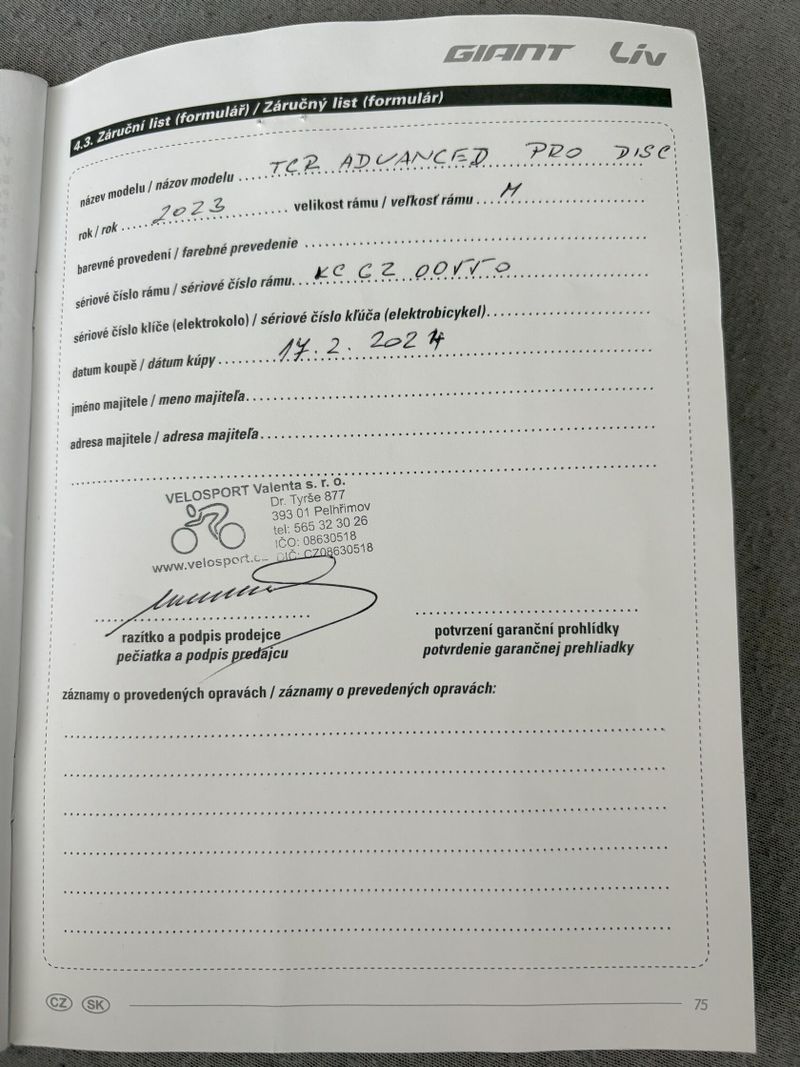 GIANT Liv
4.3. Záruční list (formulář) / Záručný list (formulár)
název modelu / názov modelu TCR ADVANCED PRO DISC
rok / rok 2023 velikost rámu / veľkosť rámu M
barevné provedení / farebné prevedenie
sériové číslo rámu / sériové číslo rámu
sériové číslo klíče (elektrokolo) / sériové číslo kľúča (elektrobicykel)
datum koupě / dátum kúpy 17.2.2024
jméno majitele / meno majiteľa
adresa majitele / adresa majiteľa
VELOSPORT Valenta s. r. o.
Dr. Tyrše 877
393 01 Pelhřimov
tel: 565 32 30 26
IČO: 08630518
www.velosport.c DIČ: CZ08630518
razítko a podpis prodejce
pečiatka a podpis predajcu
potvrzení garanční prohlídky
potvrdenie garančnej prehliadky
záznamy o provedených opravách / záznamy o prevedených opravách:
CZ SK 75